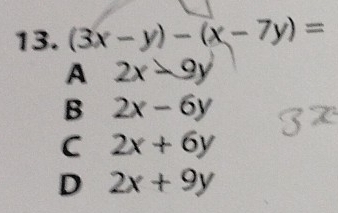 13. (3x – y) – (x – 7y) =
A 2x – 9y
B 2x – 6y
C 2x + 6y
D 2x + 9y
3x